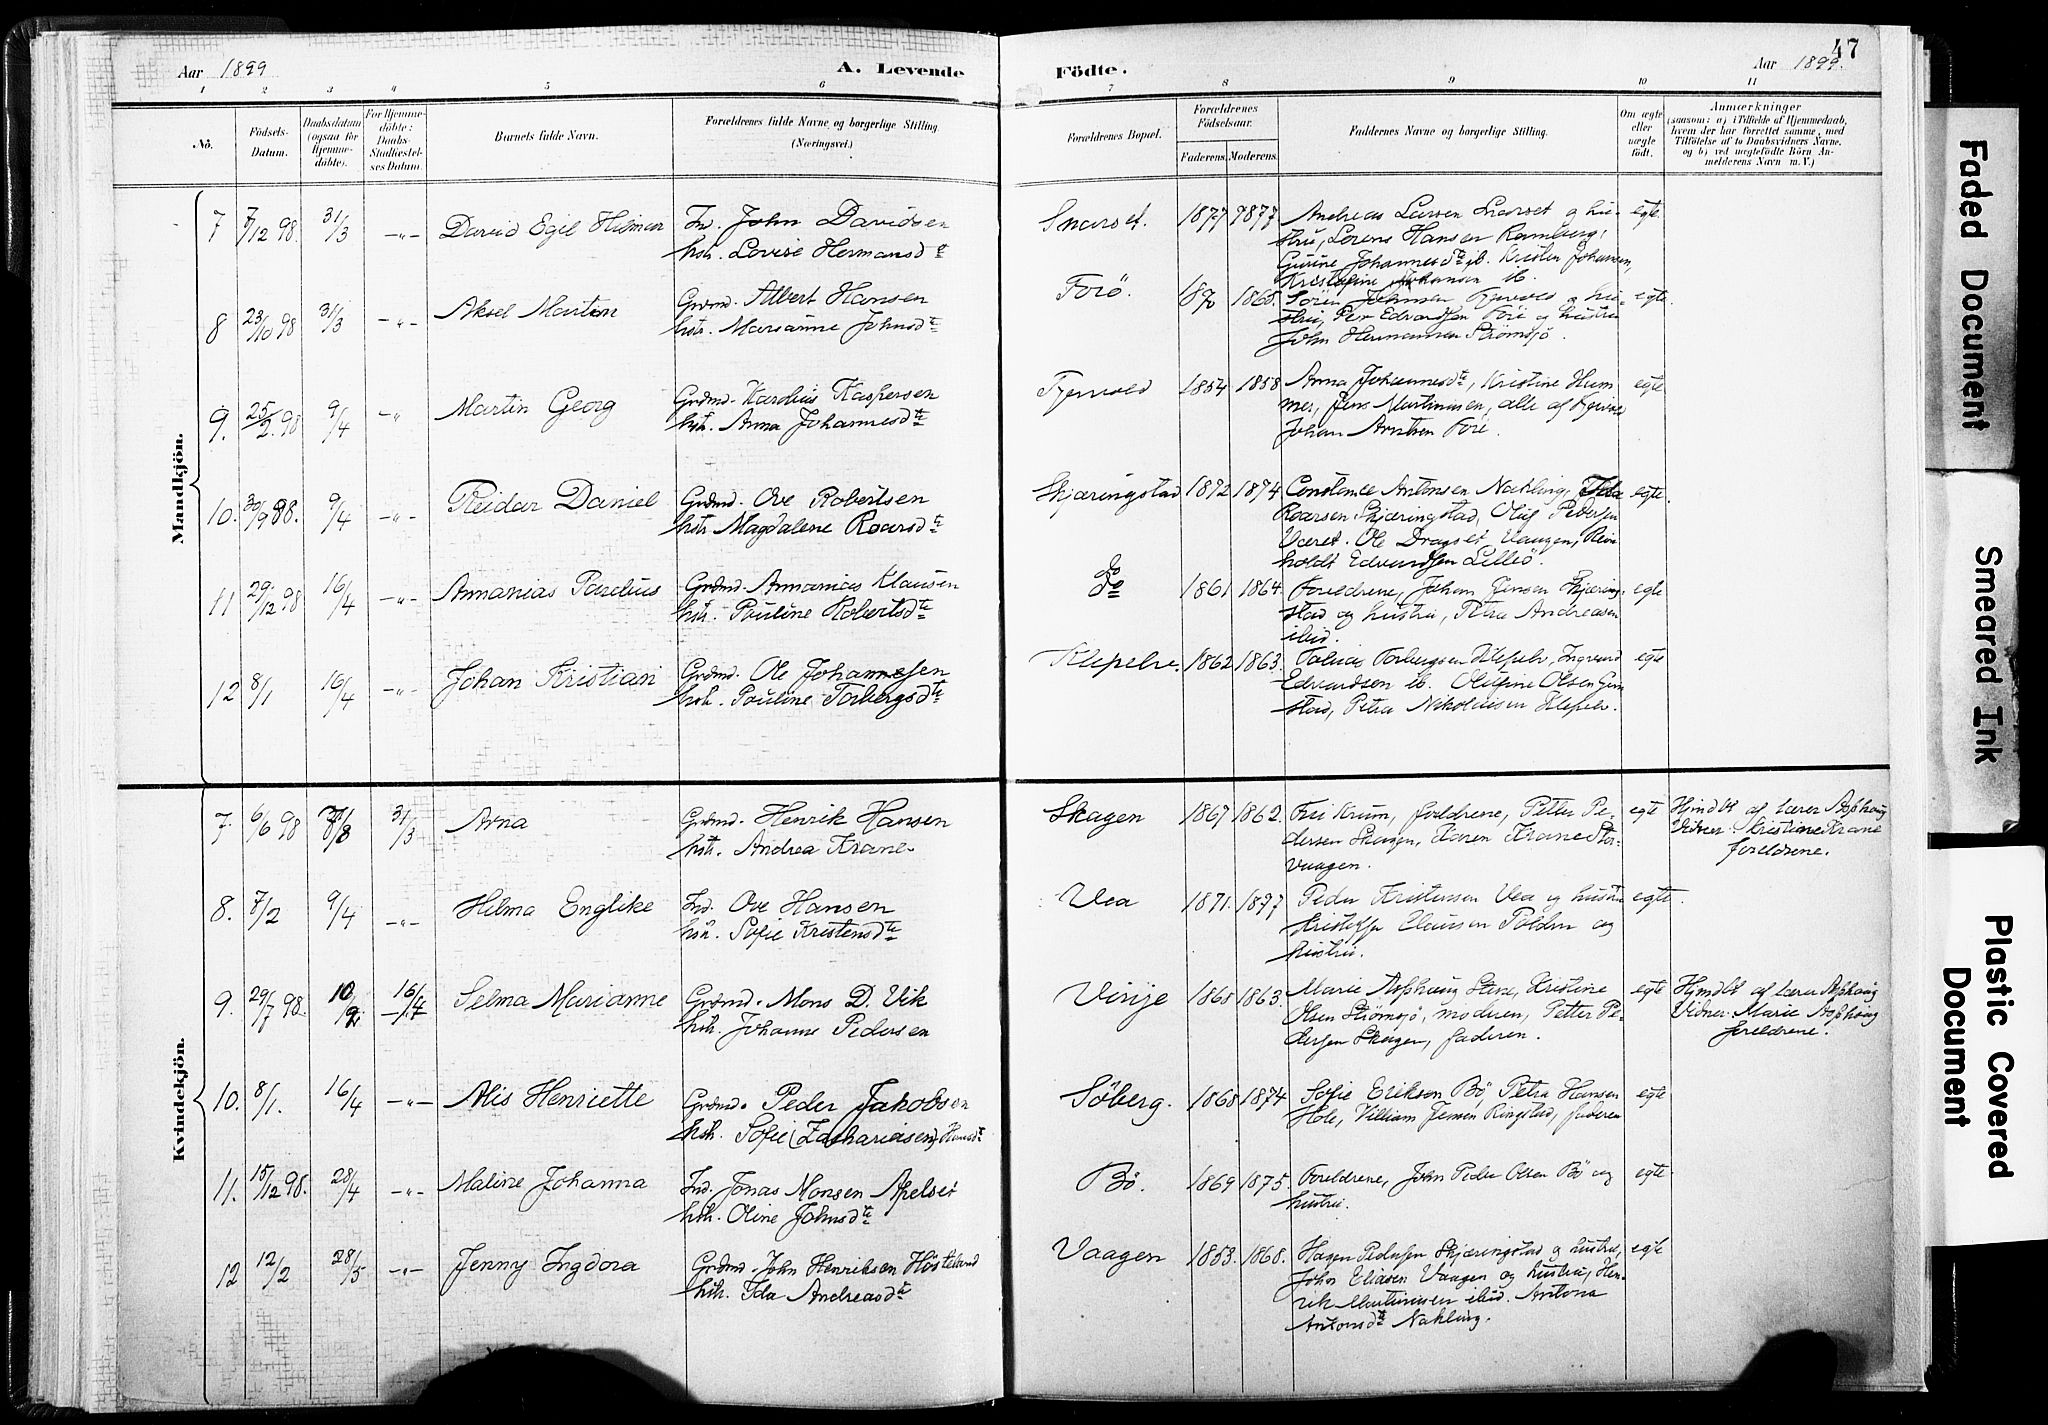 47
Aar 1899
A. Levende Födte.
Aar 1899.
1 2 3 4 5 6 7 8 9 10 11
Nö.
Födsels-
Datum.
Daabsdatum
(ogsaa for
Hjemme-
döbte).
For Hjemme-
döbte:
Daabs-
Stadfæstel-
ses Datum.
Barnets fulde Navn.
Forældrenes fulde Navne og borgerlige Stilling.
(Næringsvei.)
Forældrenes Bopæl.
Forældrenes
Födselsaar.
Faderens. Moderens.
Faddernes Navne og borgerlige Stilling.
Om ægte
eller
uægte
födt.
Anmærkninger
(saasom: a) i Tilfælde af Hjemmedaab,
hvem der har forrettet samme, med
Tilföielse af to Daabsvidners Navne.
og b) ved uægtefödte Börn An-
melderens Navn m. V.)
Mandkjön.
7 7/12 98. 31/3 -"- David Egil Hilmar
Ind. John Davidsen
hstr. Lovise Hermansdte
Snarset. 1877 1877
Andreas Larsen Snarset og hu-
stru, Lorens Hansen Ramberg,
Gurine Johannesdte ib. Kristen Johansen,
Kristofine Johansen ib.
egte
8 23/10 98 31/3 -"- Aksel Martin
Grdmd. Albert Hansen
hstr. Marianne Johnsdte
Forö. 1870 1868.
Sören Johnsen Tjervold og hu-
stru, Peter Edvardsen Fore og hustru
John Hermansen Strömsjö.
egte.
9. 25/2. 98 9/4 -"- Martin Georg
Grdmd. Karolius Kaspersen
hstr. Anna Johannesdte
Tjervold 1854 1858
Anna Johannesdte, Kristine Hum
mer, Jens Martinusen, alle af
Johan Arntsen Fore.
egte
10. 30/9 98. 9/4 -"- Reidar Daniel
Grdmd. Ove Robertsen
hstr. Magdalene Roarsdte
Skjæringstad 1872 1874
Constance Antonsen Nakling, Ida
Roarsen Skjæringstad, Oluf Pedersen
Været. Ole Dragset Vaagen, Rein
holdt Edvardsen Lilleö.
egte.
11 29/12 98 16/4 -"- Annanias Paulius
Grdmd. Annanias Klausen
hstr. Pauline Robertsdte
do 1861 1864
Foreldrene, Johan Jensen Skjæring-
stad og hustru, Petra Andreasen
ibid.
egte
12 8/1 16/4 -"- Johan Kristian
Grdmd. Ole Johannesen
hstr. Pauline Torbergsdte
Klepelv. 1862 1863.
Tobias Torbergsen Klepelv, Ingvard
Edvardsen ib. Olufine Olsen Grim
stad, Petra Nikolaisen Klepelv.
egte
Kvindekjön.
7. 6/6 98 /8 31/3 Arna
Grdmd. Henrik Hansen
hstr. Andrea Krane.
Skagen 1867 1862.
Fru Krum, foreldrene, Petter Pe-
dersen Skagen, Karen Krane Stor-
vaagen.
egte
Hjmdbt af lærer Asphaug
Vidner: Kristine Krane
foreldrene.
8. 7/2 9/4 -"- Hilma Englike
Ind. Ove Hansen
hstr. Sofie Kristensdte
Vea 1871. 1877
Peder Kristensen Vea og hustru
Kristoffer Clausen Polden og
hustru.
egte.
9. 29/7 98. 10/2 16/4 Selma Marianne
Grdmd. Mons D. Vik
hstr. Johanne Pedersen
Vinje 1865 1863.
Marie Asphaug Stene, Kristine
Olsen Strömsjö, moderen, Petter Pe-
dersen Skagen, faderen.
egte
Hjmdbt af lærer Asphaug
Vidner: Marie Asphaug
foreldrene.
10. 8/1. 16/4 -"- Alis Henriette
Grdmd. Peder Jakobsen
hstr. Sofie (Zachariasen) Hansdtr
Söberg. 1868 1874
Sofie Eriksen Bö, Petra Hansen
Hole, Villiam Jensen Ringstad, faderen
egte
11. 15/12 98. 23/4 -"- Maline Johanna
Ind. Jonas Monsen Apelset
hstr. Oline Johnsdte
Bö. 1869 1875.
Foreldrene, John Peder Olsen Bö og
hustru.
egte
12 12/2 28/5 -"- Jenny Ingdora
Grdmd. John Henriksen Höstelund
hstr. Ida Andreasdte
Vaagen 1853. 1868.
Hagen Pedersen Skjæringstad og hustru,
John Eliasen Vaagen og hustru, Hen-
rik Martinusen ibid. Antona
Antonsdte Nakling.
egte
Faded Document
Smeared Ink
Plastic Covered
Document